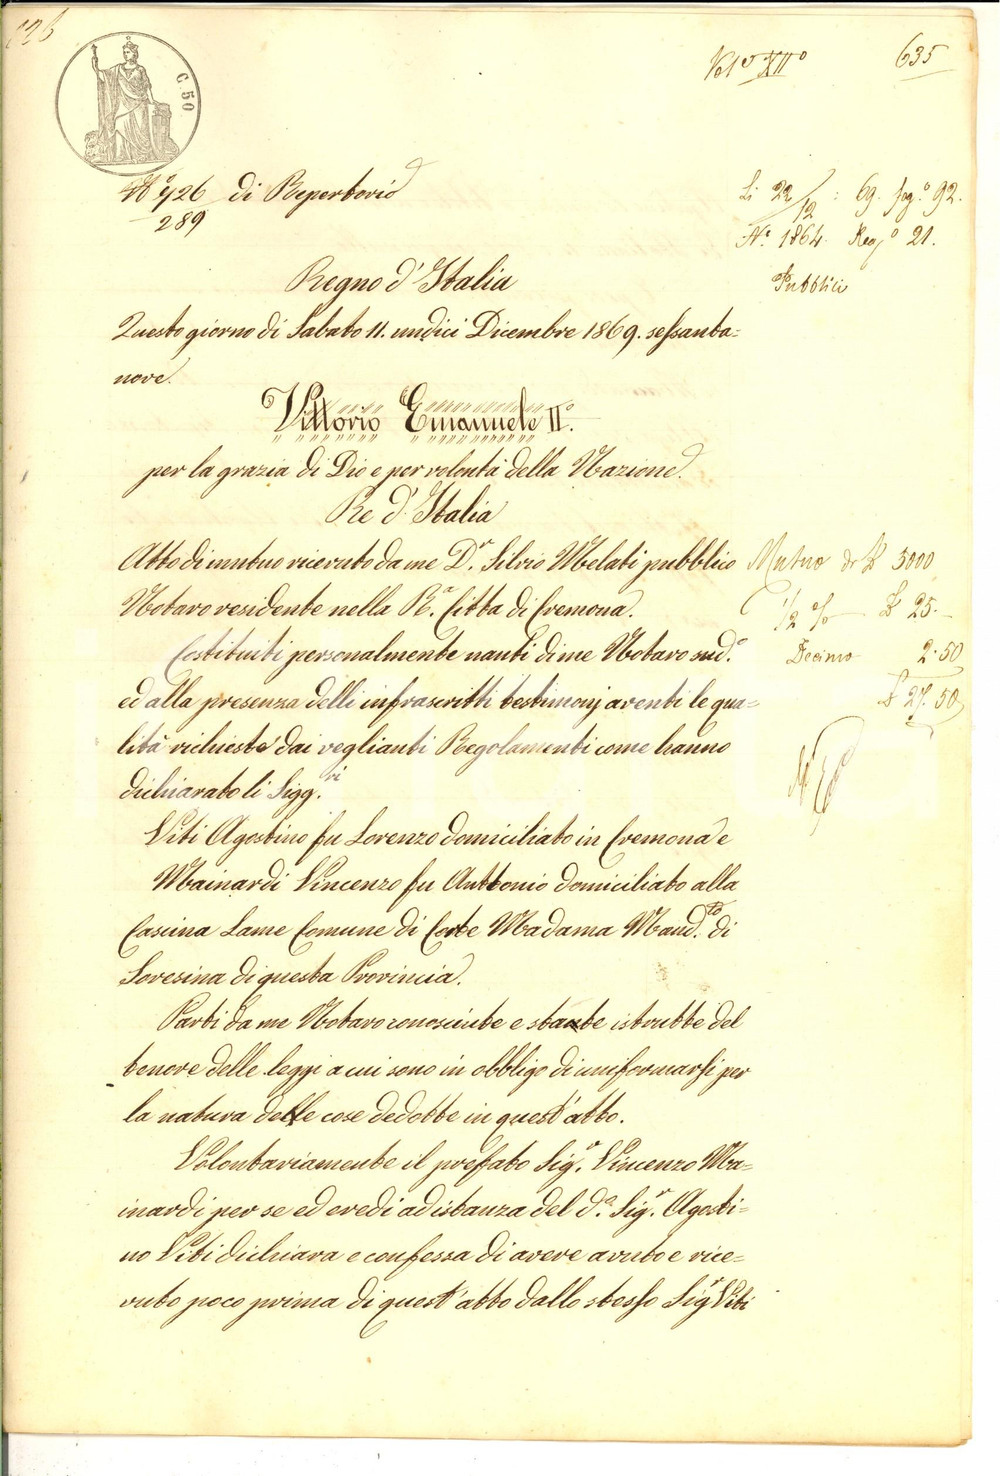 635
C. 50
Vol.e XII°
N° 726 di Repertorio
289
Li 22/12 : 69. fog.° 92.
N.° 1864. Reg.° 21.
Pubblici
Regno d'Italia
Questo giorno di Sabato 11. undici Dicembre 1869. sessanta=
nove.
Vittorio Emanuele II°.
per la grazia di Dio e per volontà della Nazione
Re d'Italia
Atto di mutuo ricevuto da me D.r Silvio Melati pubblico
Notaro residente nella R.a Città di Cremona.
Costituiti personalmente nanti di me Notaro sud.°
ed alla presenza delli infrascritti testimonj aventi le qua=
lità richieste dai veglianti Regolamenti come hanno
dichiarato li Sigg.ri
Mutuo di £ 5000
1/2 % £ 25.
Decimo 2.50
£ 27.50
Viti Agostino fu Lorenzo domiciliato in Cremona e
Mainardi Vincenzo fu Anttonio domiciliato alla
Cascina Lame Comune di Corte Madama Mand.to di
Soresina di questa Provincia.
Parti da me Notaro conosciute e state istrutte del
tenore delle leggi a cui sono in obbligo di uniformarsi per
la natura delle cose dedotte in quest'atto.
Volontariamente il preffato Sig.r Vincenzo Ma=
inardi per se ed eredi ad istanza del d.° Sig.r Agosti=
no Viti dichiara e confessa di avere avuto e rice=
vuto poco prima di quest'atto dallo stesso Sig.r Viti